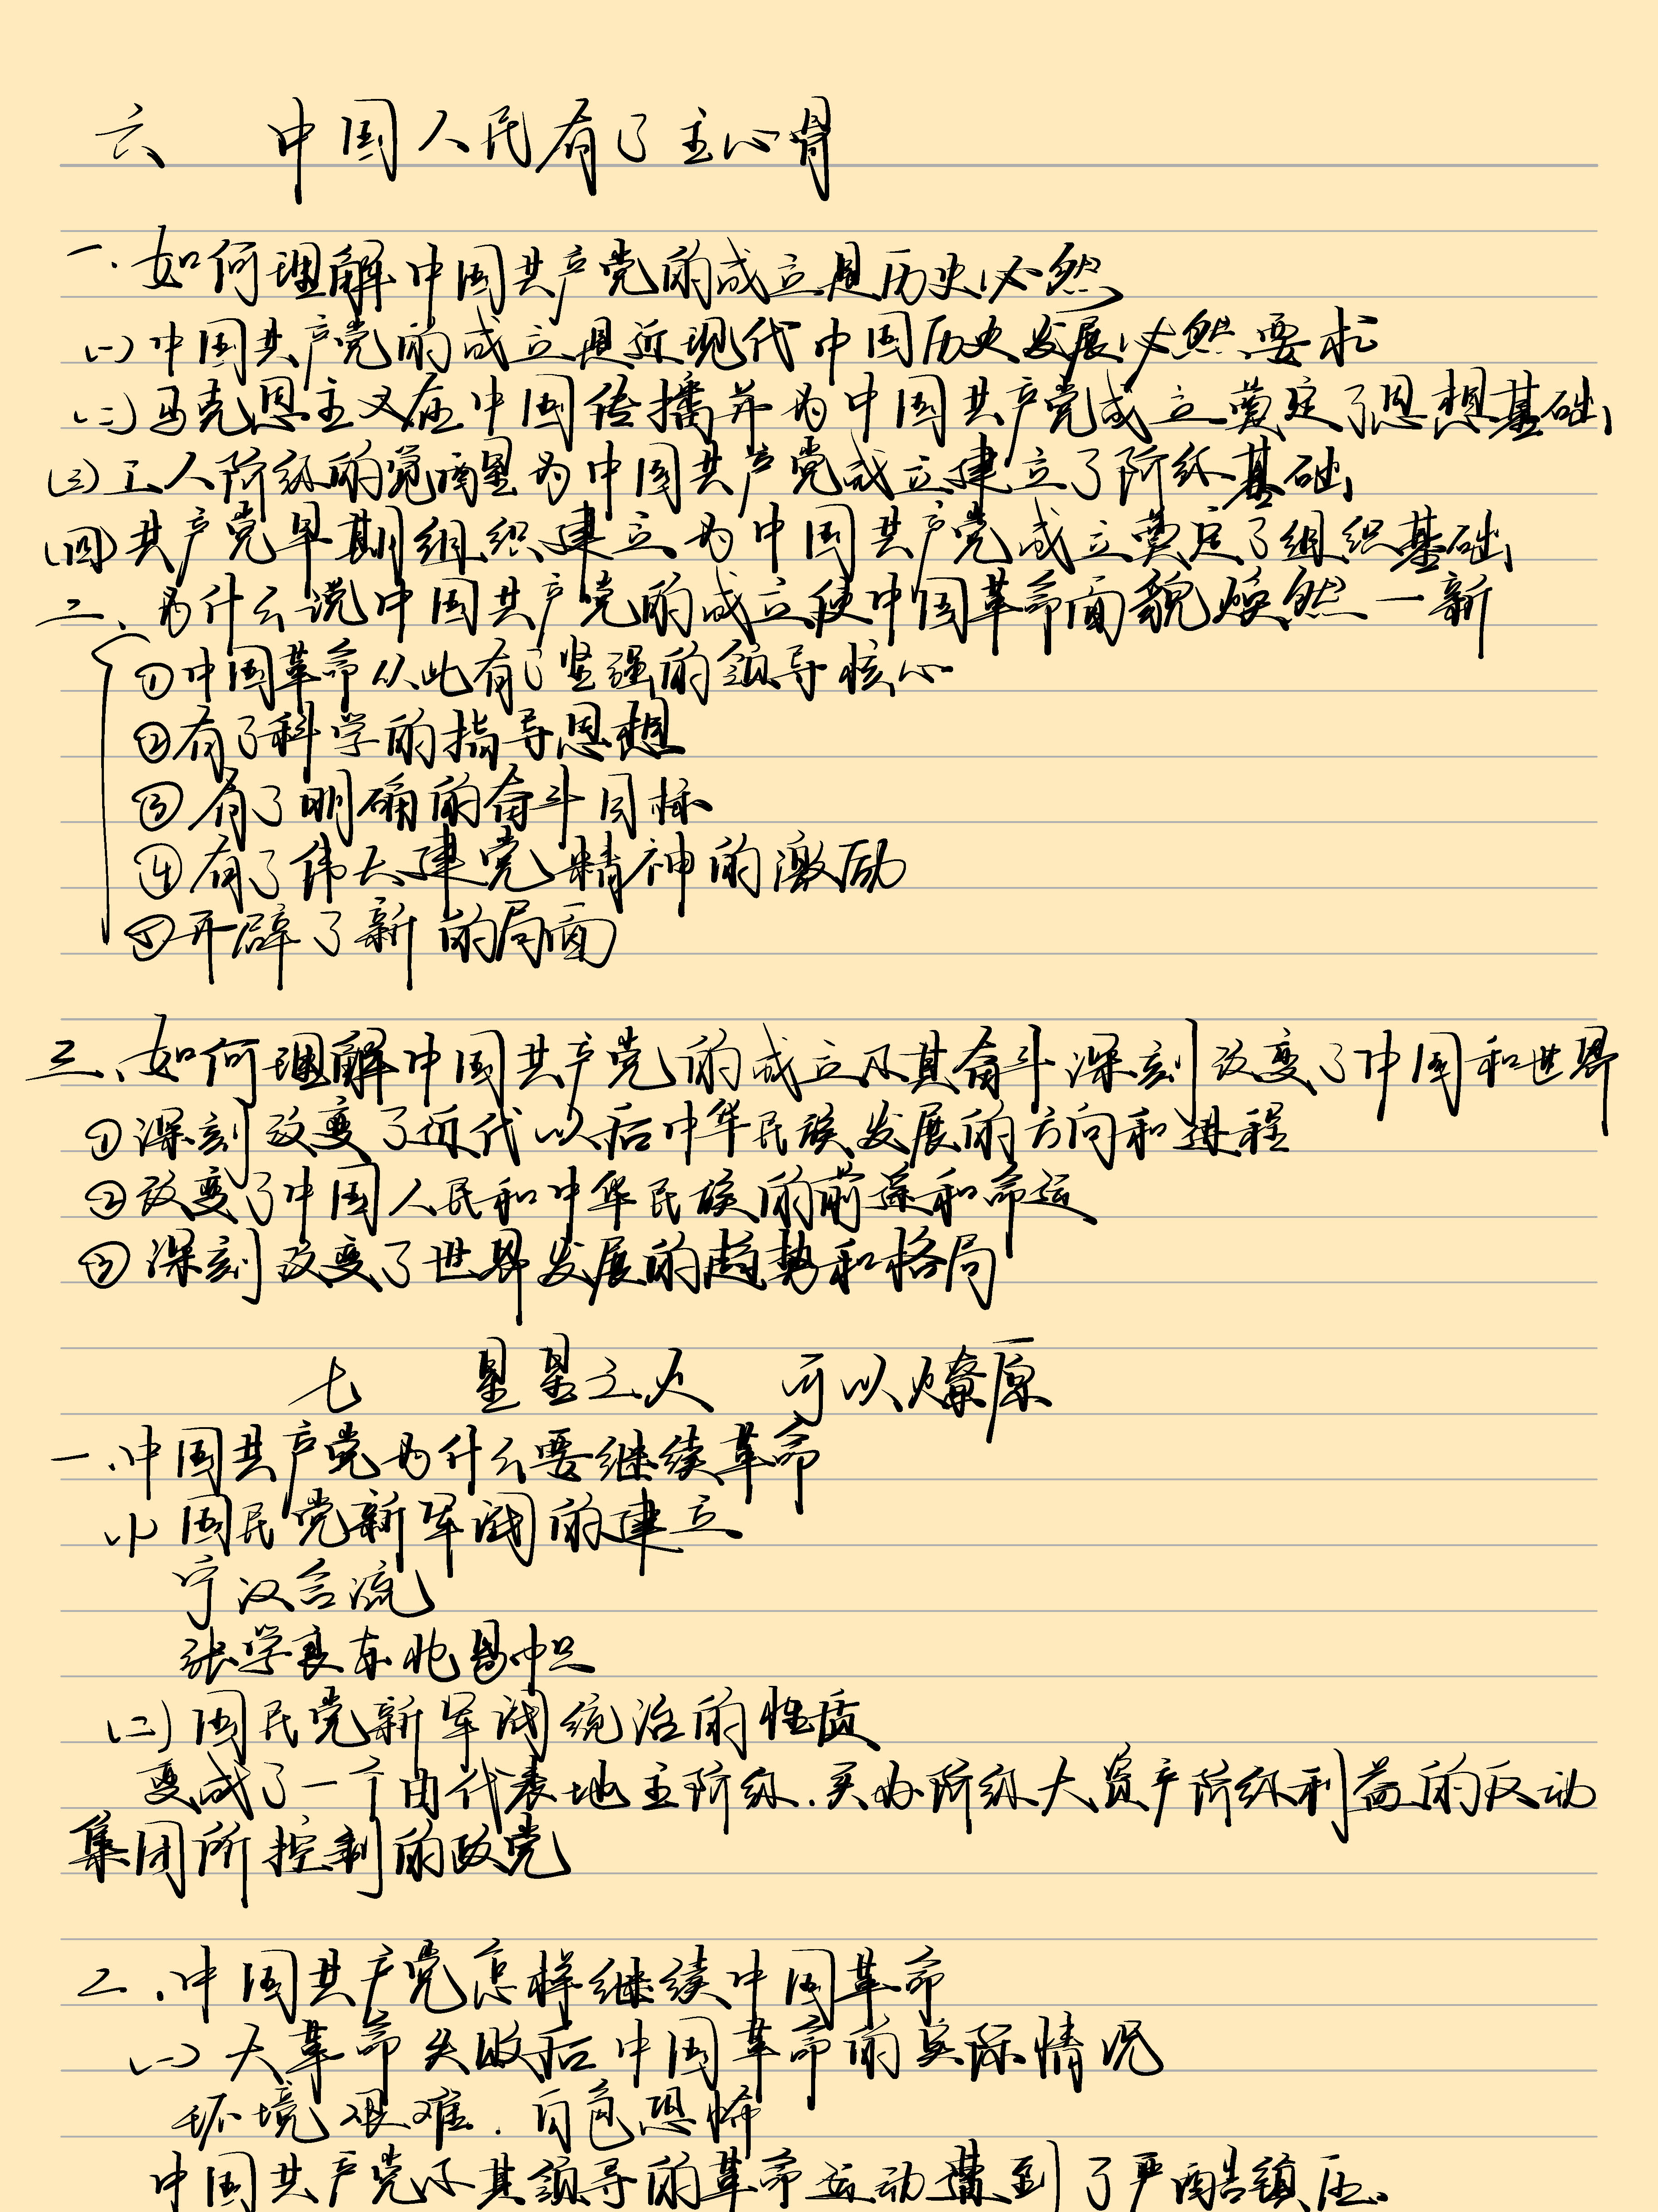 六 中国人民有了主心骨
一、如何理解中国共产党的成立是历史必然
(一)中国共产党的成立是近现代中国历史发展必然要求
(二)马克思主义在中国传播并为中国共产党成立奠定了思想基础
(三)工人阶级的觉醒为中国共产党成立建立了阶级基础
(四)共产党早期组织建立为中国共产党成立奠定了组织基础
二、为什么说中国共产党的成立使中国革命面貌焕然一新
①中国革命从此有了坚强的领导核心
②有了科学的指导思想
③有了明确的奋斗目标
④有了伟大建党精神的激励
⑤开辟了新的局面
三、如何理解中国共产党的成立及其奋斗深刻改变了中国和世界
①深刻改变了近代以后中华民族发展的方向和进程
②改变了中国人民和中华民族的前途和命运
③深刻改变了世界发展的趋势和格局
七 星星之火 可以燎原
一.中国共产党为什么要继续革命
(一)国民党新军阀的建立
宁汉合流
张学良东北易帜
(二)国民党新军阀统治的性质
变成了一个由代表地主阶级.买办阶级大资产阶级利益的反动
集团所控制的政党
二.中国共产党怎样继续中国革命
(一)大革命失败后中国革命的实际情况
环境艰难.白色恐怖
中国共产党及其领导的革命运动遭到了严酷镇压.